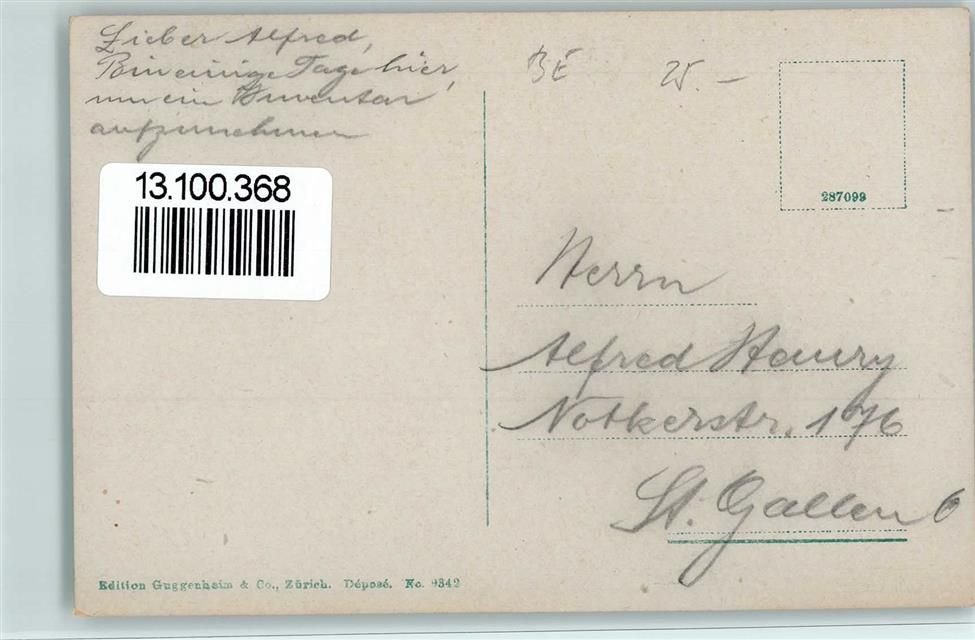 Lieber Alfred,
Bin einige Tage hier,
um ein Inventar
aufzunehmen
13.100.368
BE 25.–
287099
Herrn
Alfred Haury
Notkerstr. 176
St. Gallen O
Edition Guggenheim & Co., Zürich. Déposé. No. 9342